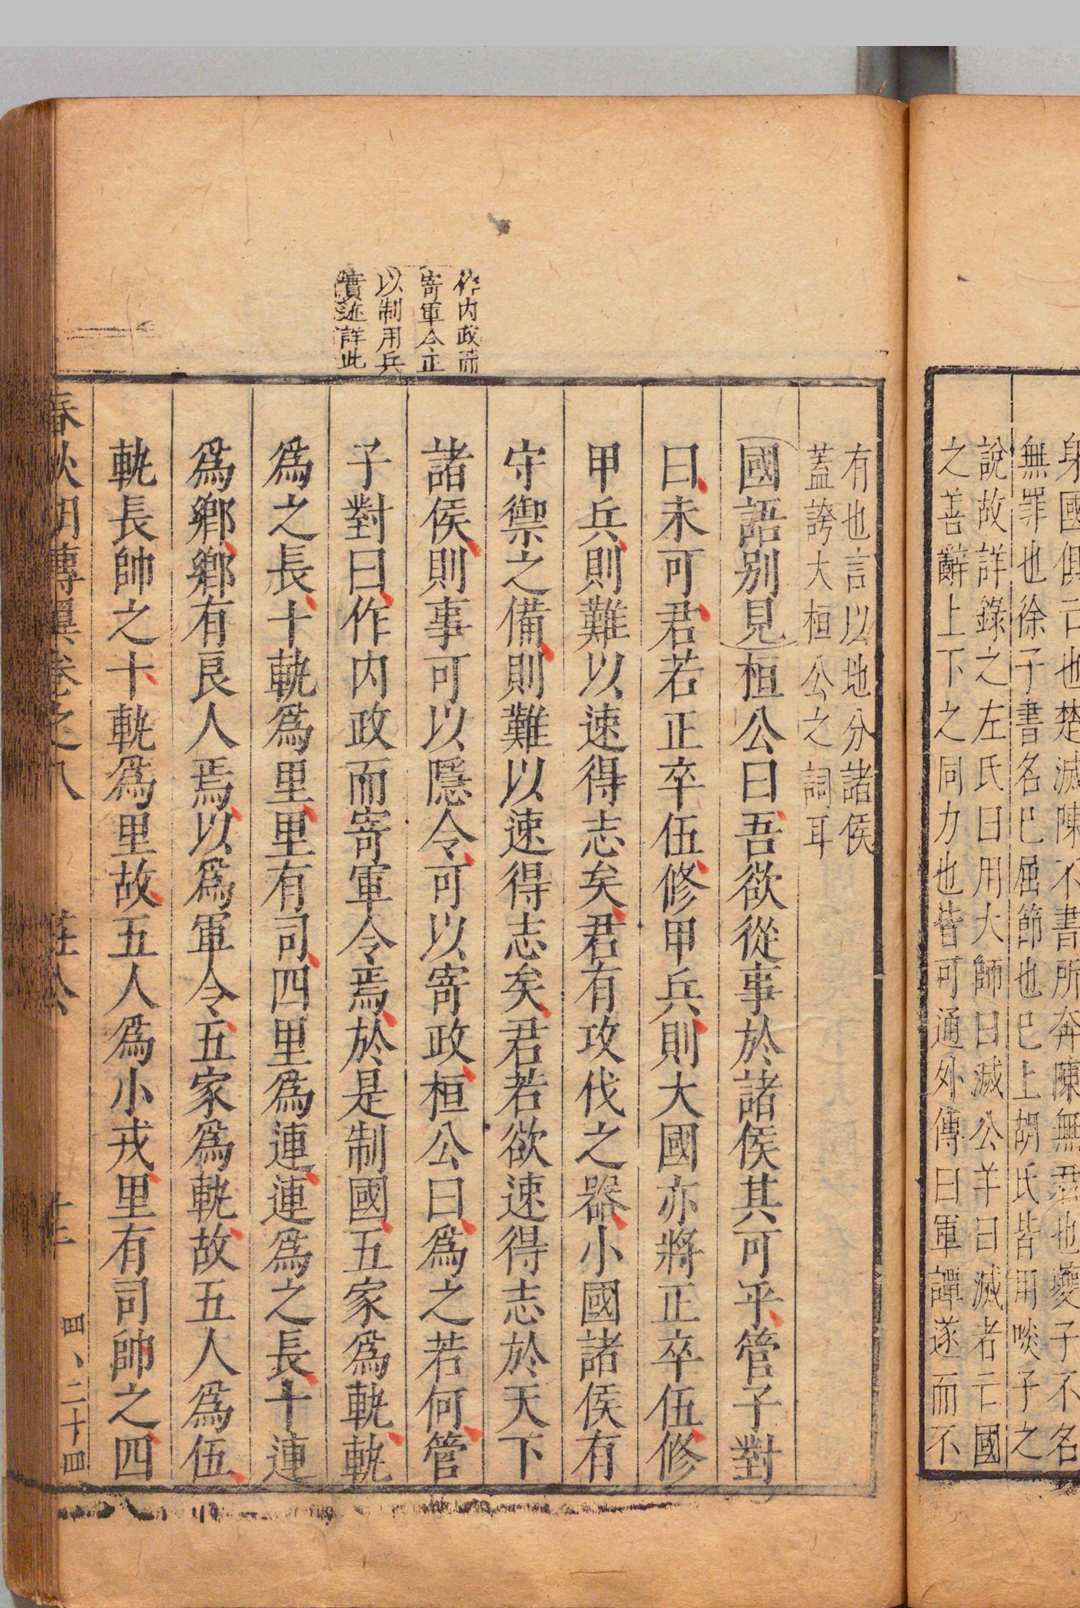 身國俱亡也楚滅陳不書所奔陳無君也夔子不名
無罪也徐子書名已屈節也已上胡氏皆用啖子之
說故詳錄之左氏曰用大師曰滅公羊曰滅者亡國
之善辭上下之同力也皆可通外傳曰軍譚遂而不
有也言以地分諸侯
蓋誇大桓公之詞耳
國語別見桓公曰吾欲從事於諸侯其可乎管子對
曰未可君若正卒伍修甲兵則大國亦將正卒伍修
甲兵則難以速得志矣君有攻伐之器小國諸侯有
守禦之備則難以速得志矣君若欲速得志於天下
諸侯則事可以隱令可以寄政桓公曰為之若何管
子對曰作內政而寄軍令焉於是制國五家為軌軌
為之長十軌為里里有司四里為連連為之長十連
為鄉鄉有良人焉以為軍令五家為軌故五人為伍
軌長帥之十軌為里故五人為小戎里有司帥之四
作內政而
寄軍令正
以制用兵
實迹詳此
春秋胡傳翼卷之八 莊公 十二 四、二十四